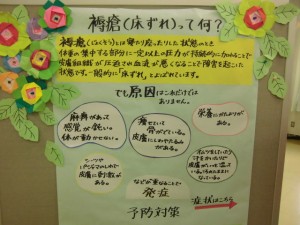 褥瘡(床ずれ)って何?
褥瘡(じょくそう)とは寝たり座ったりした状態のとき
体重の集中する部分に一定以上の圧力が持続的に加わることで
皮膚組織が圧迫で血流が悪くなることで障害を起こした
状態です。一般的に「床ずれ」とよばれています。
でも原因はこれだけでは
ありません。
麻痺があって
感覚が鈍い。
体が動かせない。
痩せていて
骨がでている。
皮膚にしわやたるみが
ある。
栄養にかたよりが
ある。
シーツや
パジャマのしわで
皮膚に
がある。
オムツをしていたり
汗をかいたりで
皮膚がいつも湿って
いる。
などが重なることで
発症
症状はこちら
予防対策